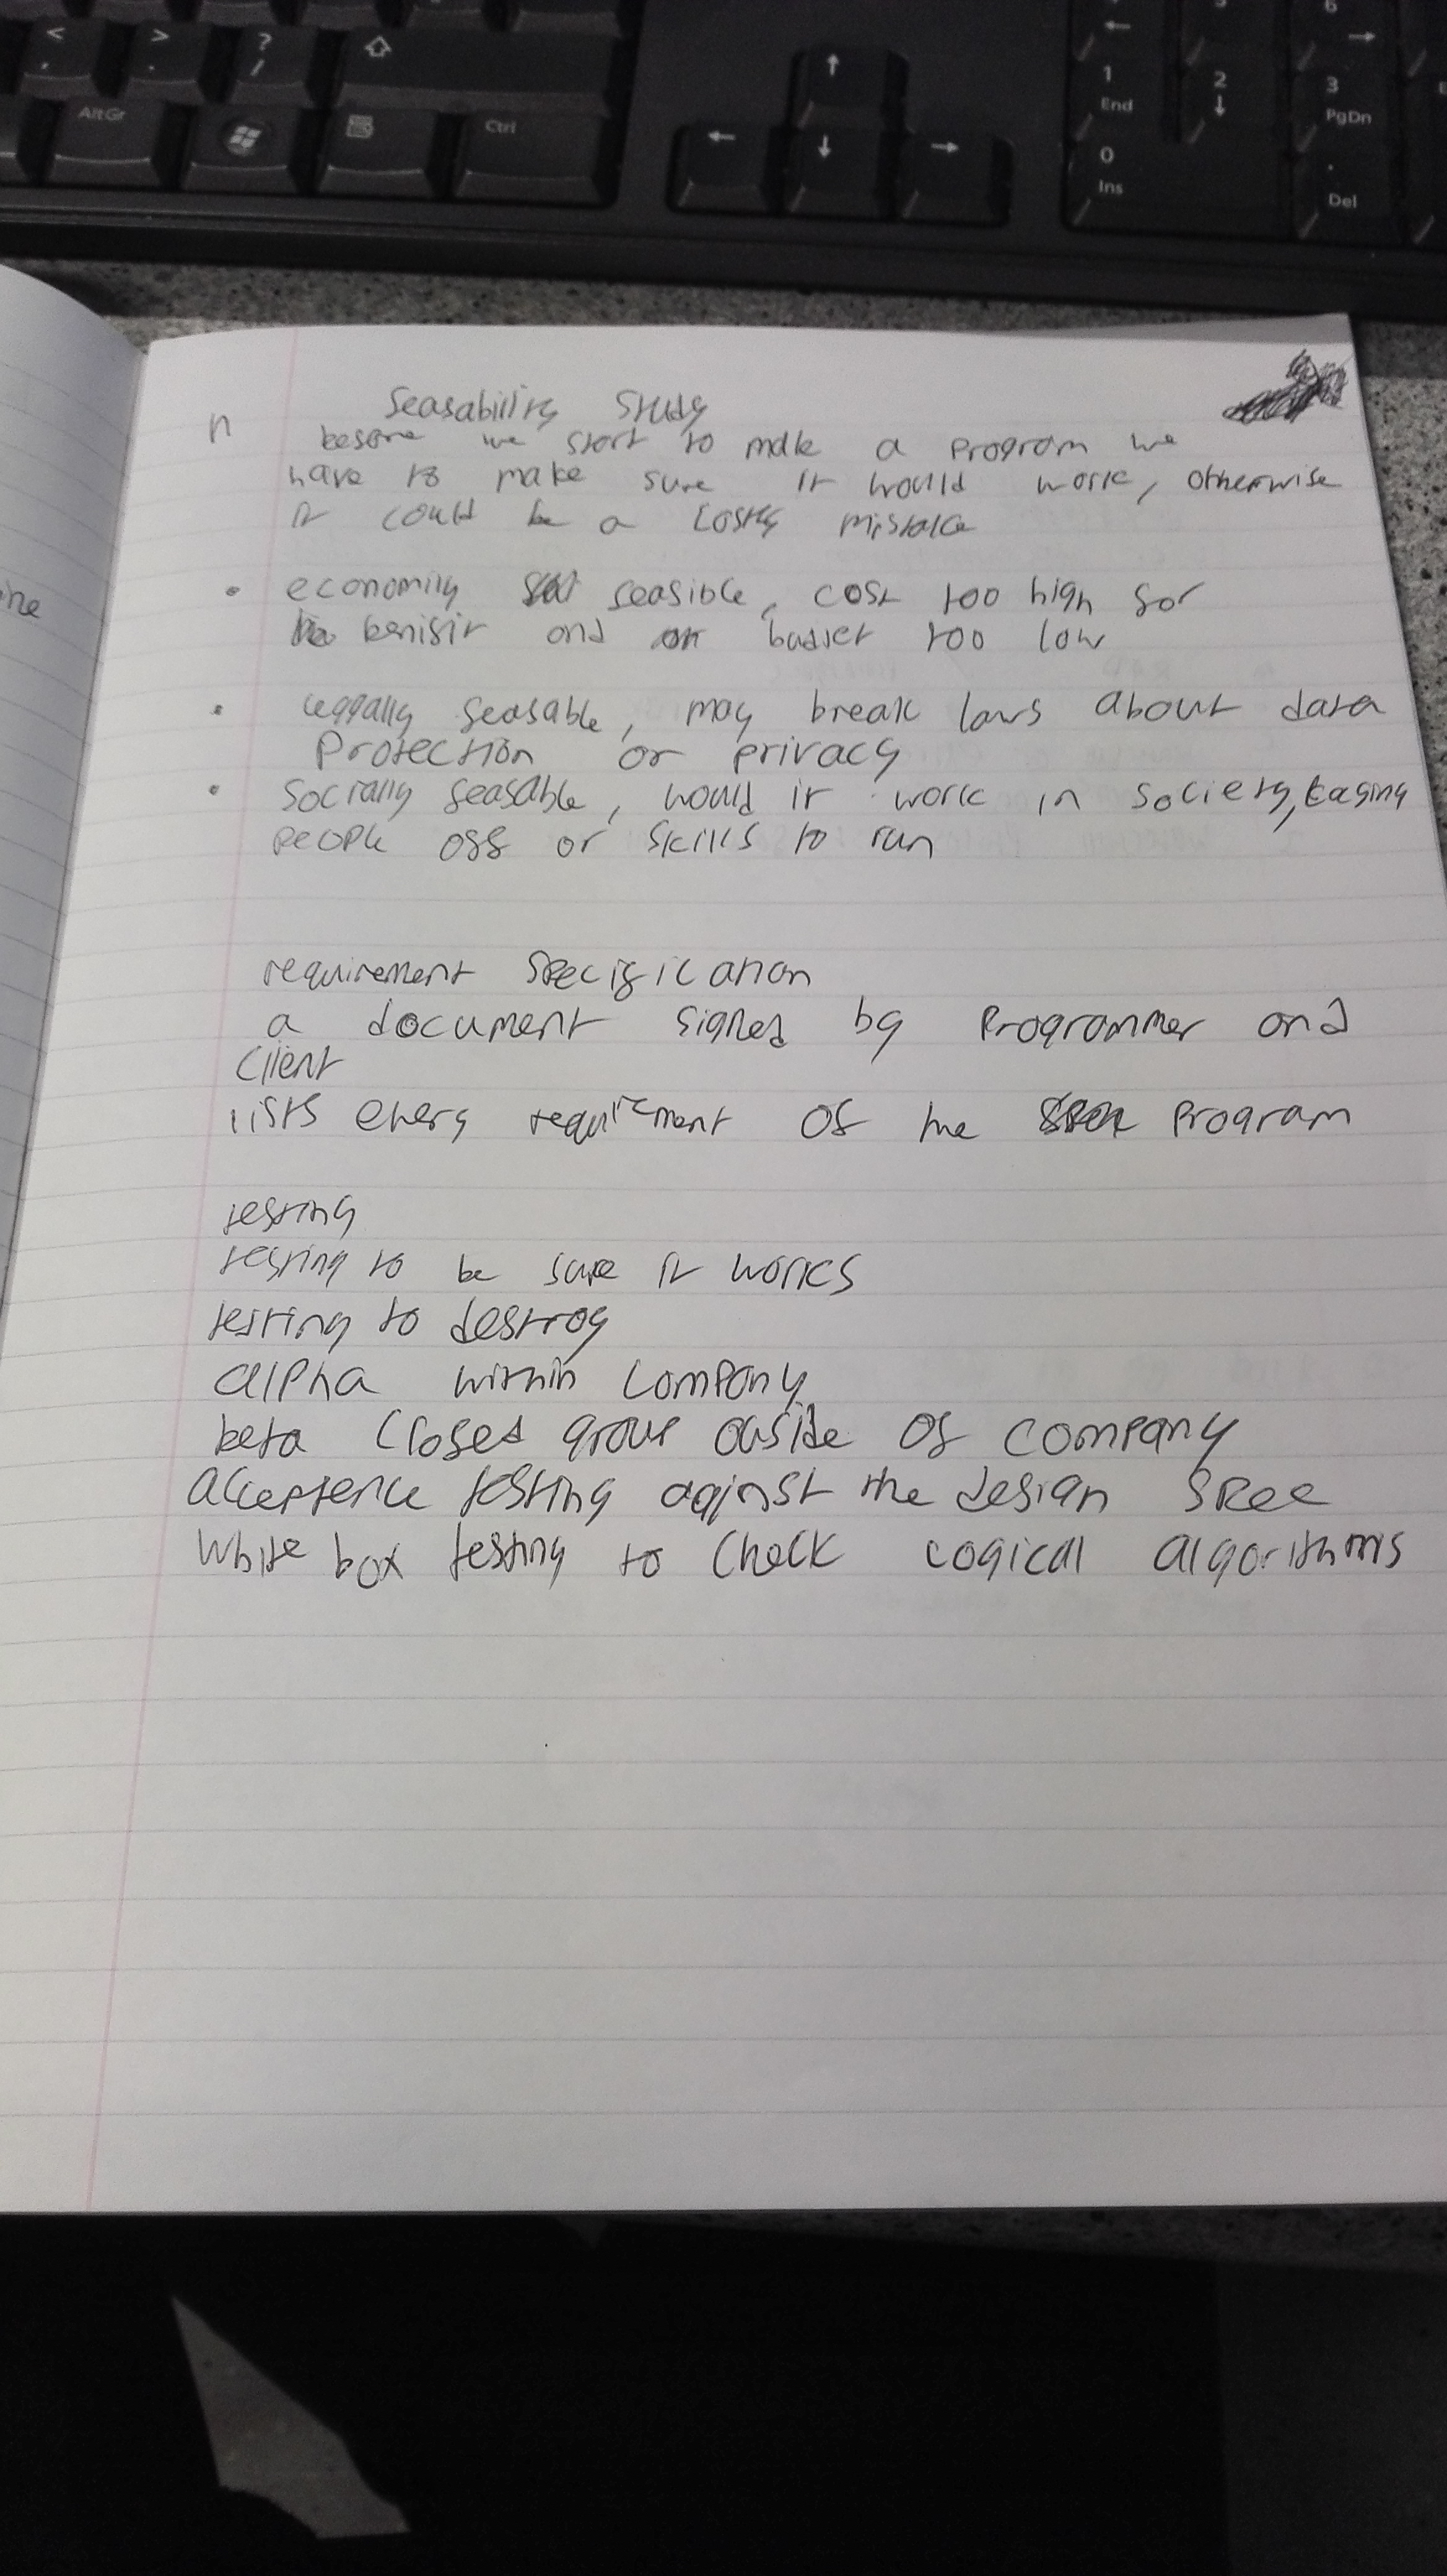 <
,
>
.
?
/
AltGr
Ctrl
1
End
2
3
PgDn
0
Ins
.
Del
6
n
feasability study
before we start to make a program we
have to make sure it would work, otherwise
it could be a costly mistake
• economily feasible, cost too high for
benifit and budget too low
• leggally feasable, may break laws about data
protection or privacy
• socially feasable, would it work in society,
people off or skills to run
requirement specification
a document signed by programmer and
client
lists every requirement of the program
testing
testing to be sure it works
testing to destroy
alpha within company
beta closed group ouside of company
acceptence testing against the design spec
white box testing to check logical algorithms